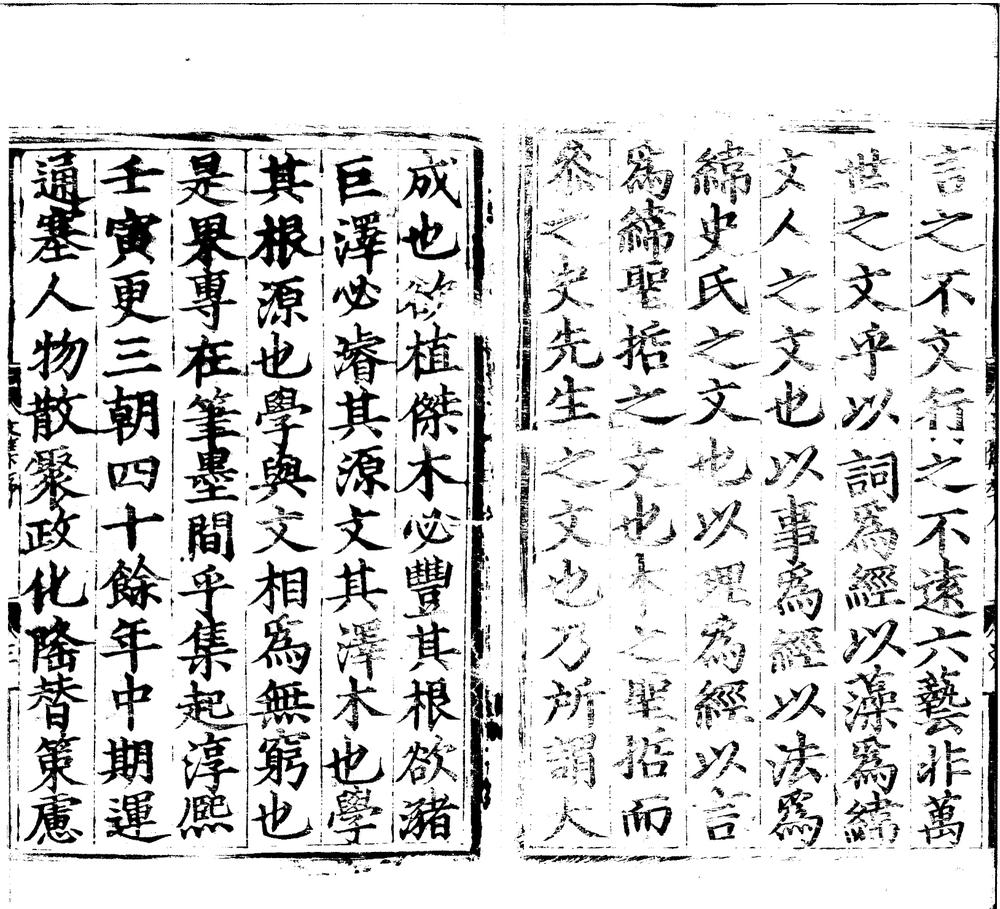 言之不文行之不遠六藝非萬
世之文乎以詞爲經以藻爲緯
文人之文也以事爲經以法爲
緯史氏之文也以理爲經以言
爲緯聖哲之文也本之聖哲而
叅之史先生之文也乃所謂大
成也欲植傑木必豐其根欲瀦
巨澤必濬其源文其澤木也學
其根源也學與文相爲無窮也
是畢專在筆墨間乎集起淳熈
壬寅更三朝四十餘年中期運
通塞人物散聚政化隆替策慮